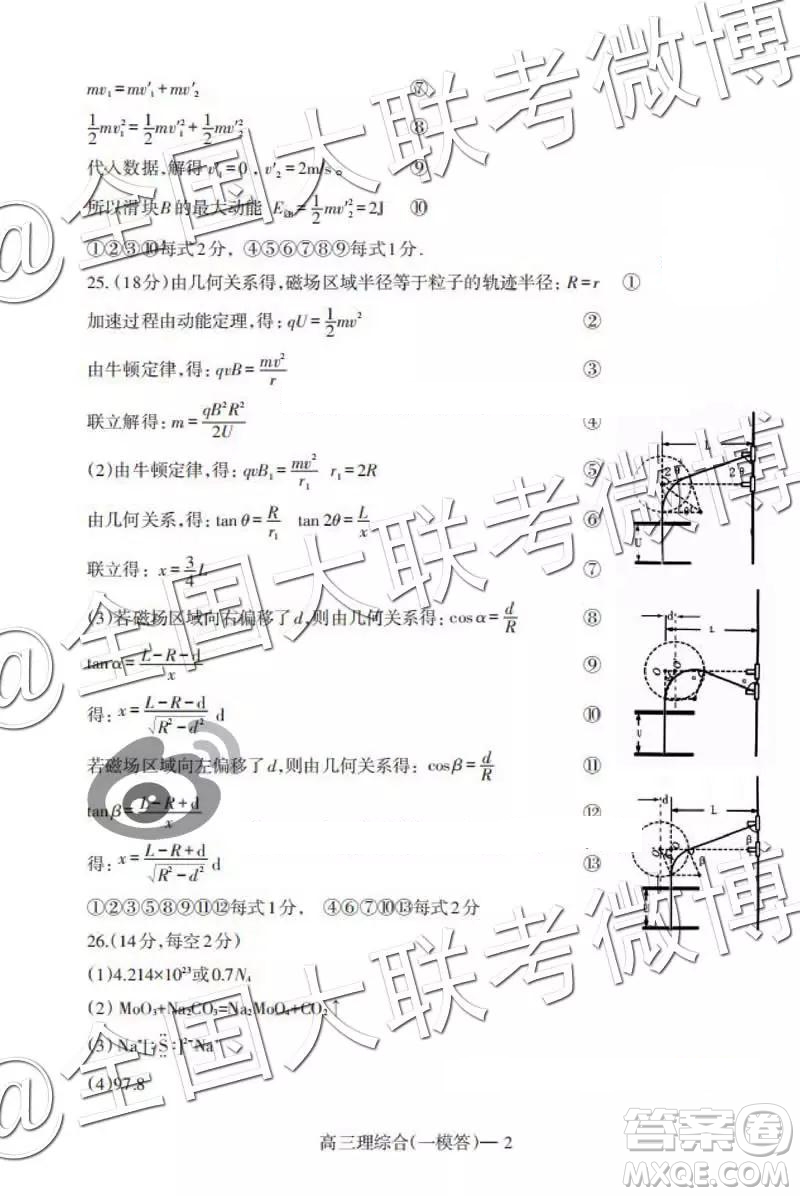 mv₁=mv′₁+mv′₂ ⑦
½mv₁²=½mv′₁²+½mv′₂² ⑧
代入数据,解得 v′₁=0，v′₂=2m/s。 ⑨
所以滑块B的最大动能 E_kB=½mv′₂²=2J ⑩
①②③⑩每式2分，④⑤⑥⑦⑧⑨每式1分.
25.(18分)由几何关系得,磁场区域半径等于粒子的轨迹半径：R=r ①
加速过程由动能定理,得：qU=½mv² ②
由牛顿定律,得：qvB=mv²/r ③
联立解得：m=qB²R²/2U ④
(2)由牛顿定律,得：qvB₁=mv²/r₁ r₁=2R ⑤
由几何关系,得：tanθ=R/r₁ tan2θ=L/x ⑥
联立得：x=¾L ⑦
(3)若磁场区域向右偏移了d,则由几何关系得：cosα=d/R ⑧
tanα=(L-R-d)/x ⑨
得：x=(L-R-d)/√(R²-d²) d ⑩
若磁场区域向左偏移了d,则由几何关系得：cosβ=d/R ⑪
tanβ=(L-R+d)/x ⑫
得：x=(L-R+d)/√(R²-d²) d ⑬
①②③⑤⑧⑨⑪⑫每式1分， ④⑥⑦⑩⑬每式2分
26.(14分,每空2分)
(1)4.214×10²³或0.7N_A
(2) MoO₃+Na₂CO₃=Na₂MoO₄+CO₂↑
(3) Na⁺[:S:]²⁻Na⁺
(4)97.8
高三理综合(一模答)— 2
@全国大联考微博
@全国大联考微博
@全国大联考微博
答案卷
MXQE.COM